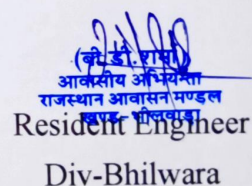 (बी.डी. शर्मा)
आवासीय अभियन्ता
राजस्थान आवासन मण्डल
खण्ड-भीलवाड़ा
Resident Engineer
Div-Bhilwara